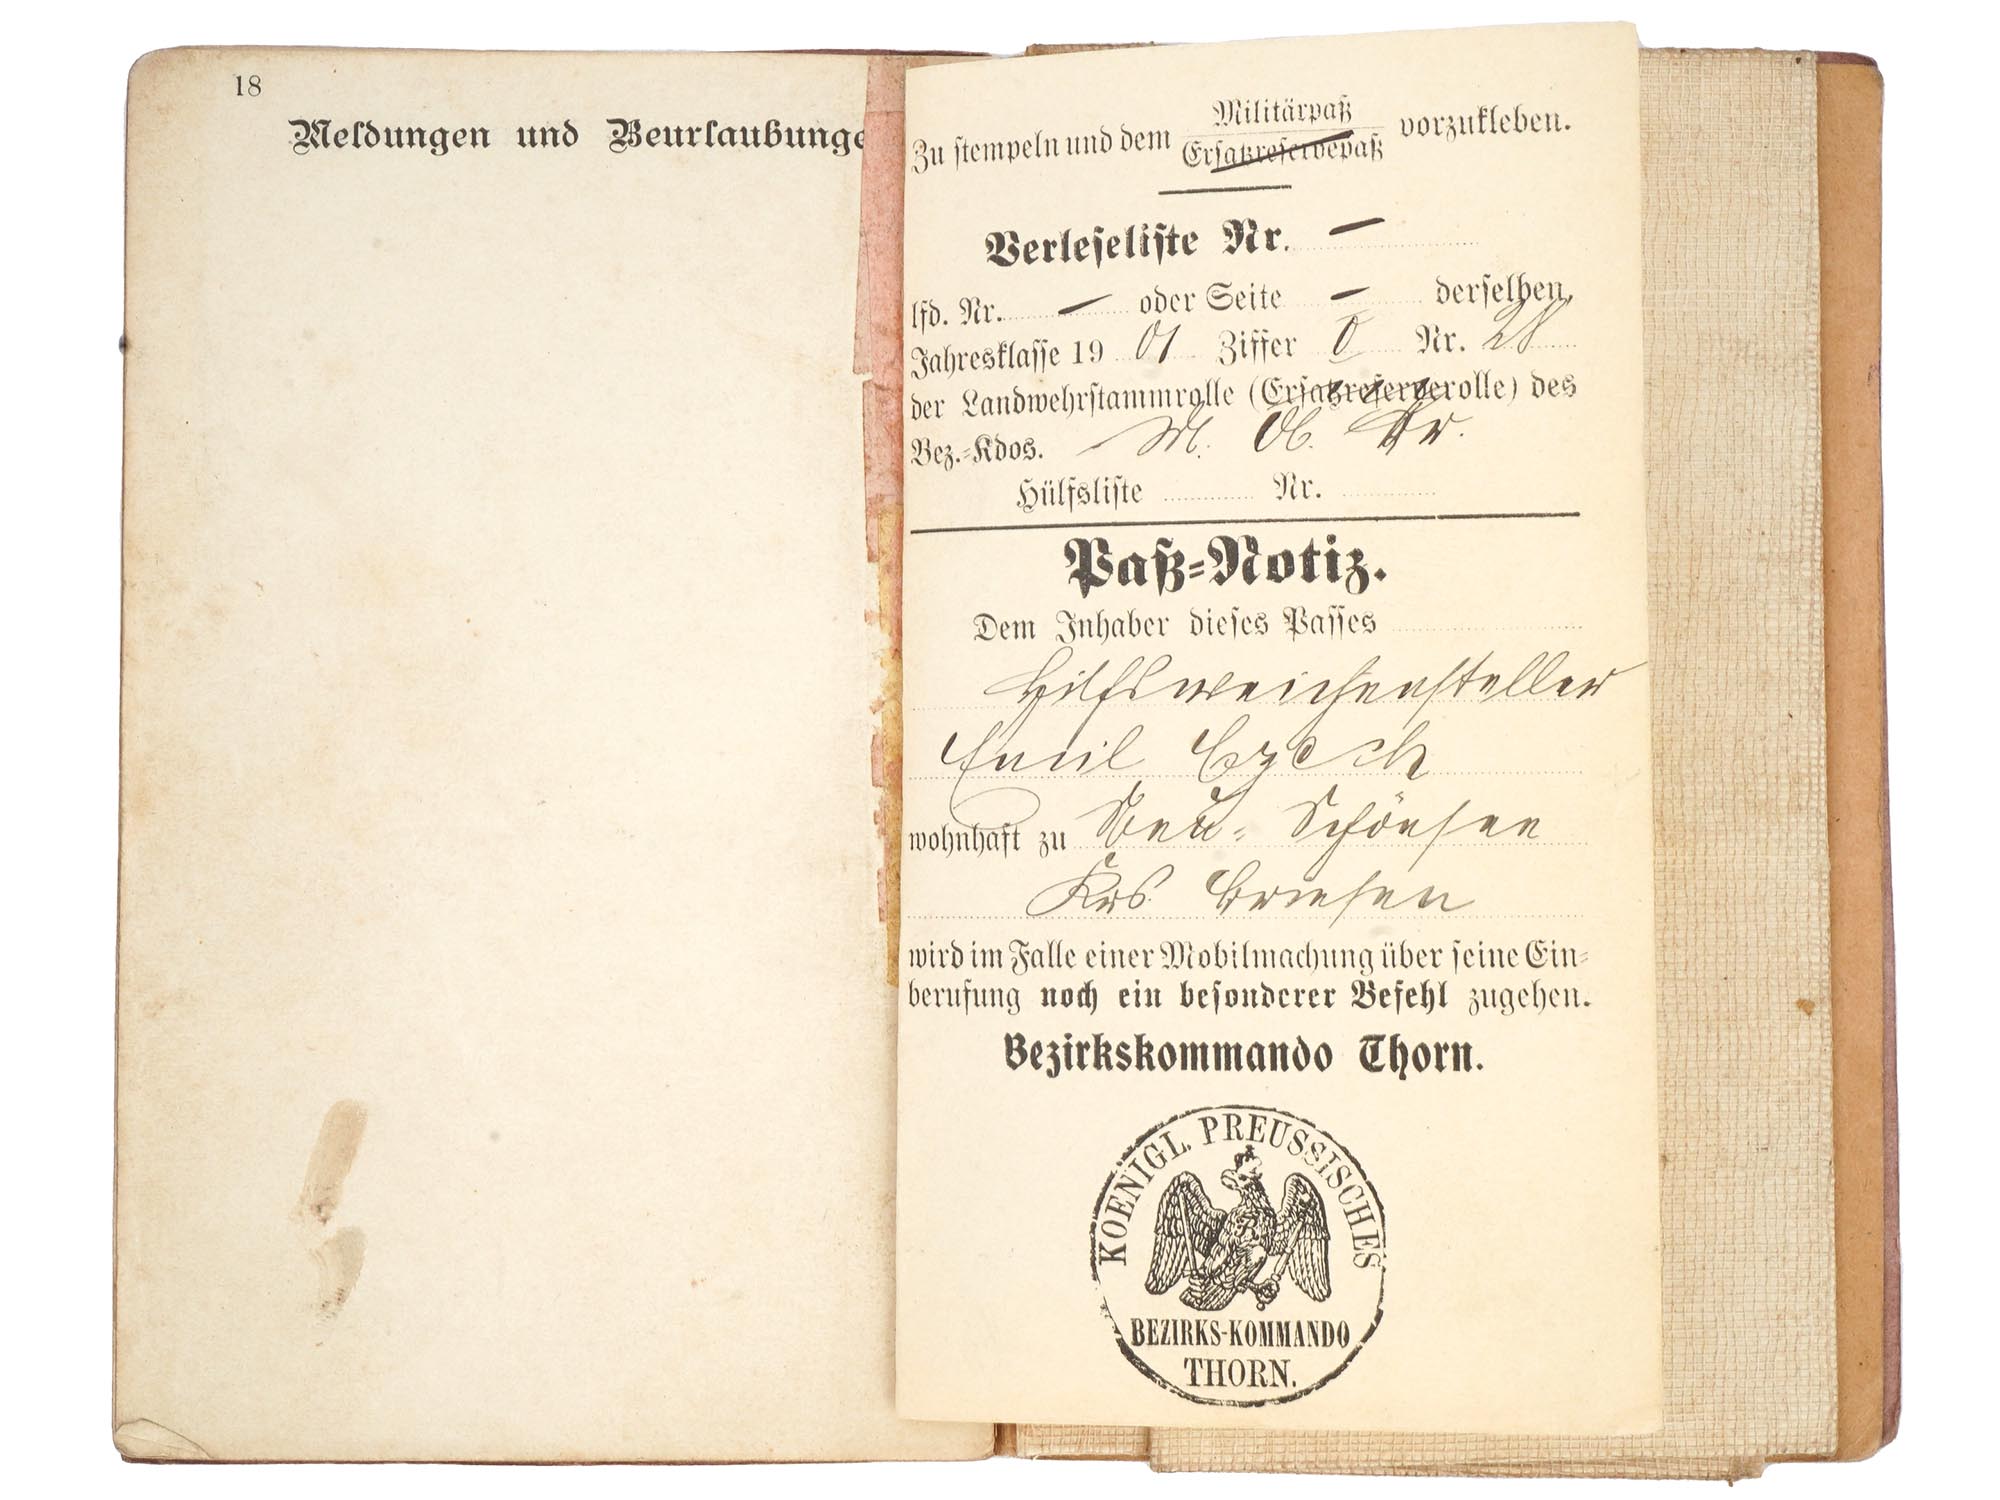 18
Meldungen und Beurlaubunge
Zu stempeln und dem Militärpaß vorzukleben.
Ersatzreservepaß
Verleseliste Nr. —
lfd. Nr. — oder Seite — derselben,
Jahresklasse 19 01 Ziffer Nr. 28
der Landwehrstammrolle (Ersatzreserverolle) des
Bez.-Kdos. M.
Hülfsliste Nr.
Paß-Notiz.
Dem Inhaber dieses Passes
Hilfsweichensteller
Emil Czech
wohnhaft zu Neu-Schönsee
Krs. Briesen
wird im Falle einer Mobilmachung über seine Ein-
berufung noch ein besonderer Befehl zugehen.
Bezirkskommando Thorn.
KOENIGL. PREUSSISCHES
BEZIRKS-KOMMANDO
THORN.